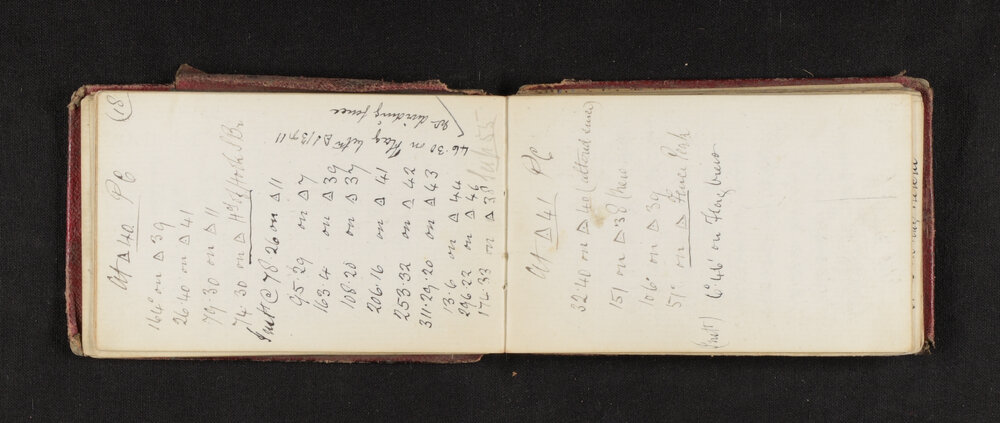 18
At Δ 40 PC
164° on Δ 39
26·40 on Δ 41
79·30 on Δ 11
74·30 on Δ
Inst @ 78·26 on Δ 11
95·29 on Δ 7
163·4 on Δ 39
108·20 on Δ 37
206·16 on Δ 41
253·32 on Δ 42
311·29·20 on Δ 43
13·6 on Δ 44
296·22 on Δ 46
174·33 on Δ 38
46·30 on Flag betn Δs 1/39·11
on dividing fence
At Δ 41 PC
32·40 on Δ 40 (altered since)
151 on Δ 38
106° on Δ 39
51° on Δ Fence
(inst) 6°46' on Flag brow